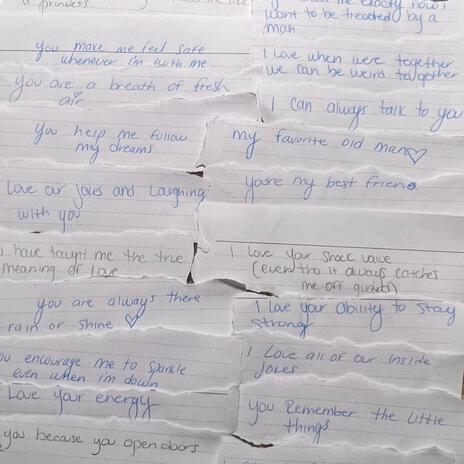 a princess
you make me feel safe
whenever i'm with me
You are a breath of fresh
air
You help me follow
my dreams
Love our jokes and Laughing
with you
have taught me the true
meaning of love
you are always there
rain or shine ♡
encourage me to sparkle
even when i'm down
Love your energy
you because you open doors
me exactly how I
want to be treated by a
man
I Love when we're together
we can be weird together
I can always talk to you
my favorite old man♡
you're my best friend
I Love your shock value
(even tho it always catches
me off guard)
I Love your ability to stay
strong
I Love all of our inside
jokes
you Remember the little
things